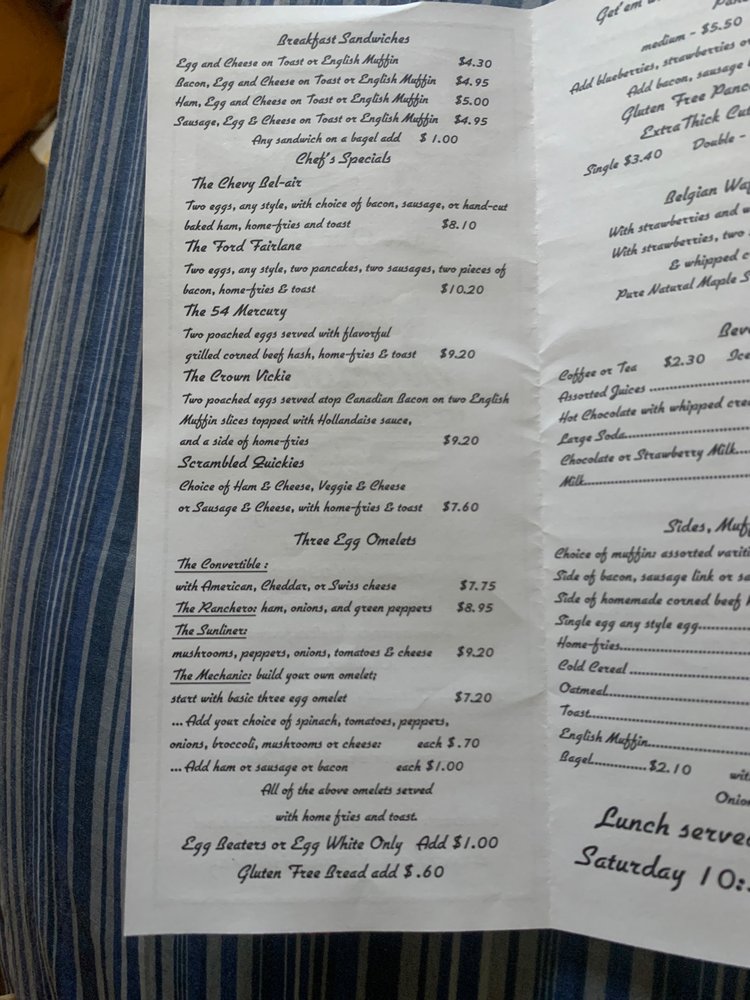 Breakfast Sandwiches
Egg and Cheese on Toast or English Muffin $4.30
Bacon, Egg and Cheese on Toast or English Muffin $4.95
Ham, Egg and Cheese on Toast or English Muffin $5.00
Sausage, Egg & Cheese on Toast or English Muffin $4.95
Any sandwich on a bagel add $ 1.00
Chef's Specials
The Chevy Bel-air
Two eggs, any style, with choice of bacon, sausage, or hand-cut
baked ham, home-fries and toast $8.10
The Ford Fairlane
Two eggs, any style, two pancakes, two sausages, two pieces of
bacon, home-fries & toast $10.20
The 54 Mercury
Two poached eggs served with flavorful
grilled corned beef hash, home-fries & toast $9.20
The Crown Vickie
Two poached eggs served atop Canadian Bacon on two English
Muffin slices topped with Hollandaise sauce,
and a side of home-fries $9.20
Scrambled Quickies
Choice of Ham & Cheese, Veggie & Cheese
or Sausage & Cheese, with home-fries & toast $7.60
Three Egg Omelets
The Convertible :
with American, Cheddar, or Swiss cheese $7.75
The Ranchero: ham, onions, and green peppers $8.95
The Sunliner:
mushrooms, peppers, onions, tomatoes & cheese $9.20
The Mechanic: build your own omelet;
start with basic three egg omelet $7.20
... Add your choice of spinach, tomatoes, peppers,
onions, broccoli, mushrooms or cheese: each $.70
... Add ham or sausage or bacon each $1.00
All of the above omelets served
with home fries and toast.
Egg Beaters or Egg White Only Add $1.00
Gluten Free Bread add $.60
Get'em
medium - $5.50
Add blueberries, strawberries or
Add bacon, sausage
Gluten Free Panc
Extra Thick Cut
Single $3.40 Double -
Belgian Waf
With strawberries and w
With strawberries, two
& whipped c
Pure Natural Maple S
Bev
Coffee or Tea $2.30 Ice
Assorted Juices
Hot Chocolate with whipped crea
Large Soda
Chocolate or Strawberry Milk
Milk
Sides, Muff
Choice of muffin: assorted variti
Side of bacon, sausage link or sa
Side of homemade corned beef h
Single egg any style egg
Home-fries
Cold Cereal
Oatmeal
Toast
English Muffin
Bagel $2.10 wit
Onio
Lunch served
Saturday 10: